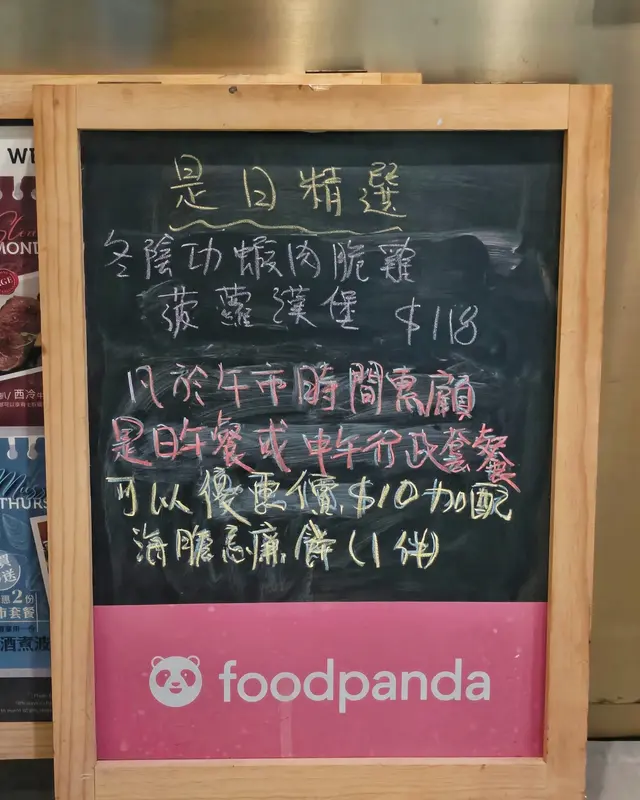 是日精選
冬陰功蝦肉脆雞
菠蘿漢堡 $118
凡於午市時間惠顧
是日午餐或中午行政套餐
可以優惠價$10加配
海膽忌廉餅(1件)
foodpanda
WE
MOND
西冷牛
THURS
送
惠2份
市套餐
酒煮波